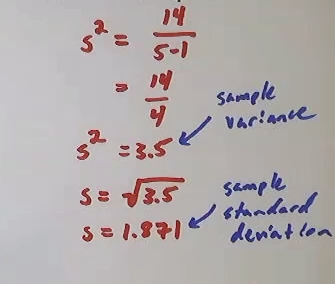 s² = 14/5-1
= 14/4
s² = 3.5
sample variance
s = √3.5
s = 1.871
sample standard deviation